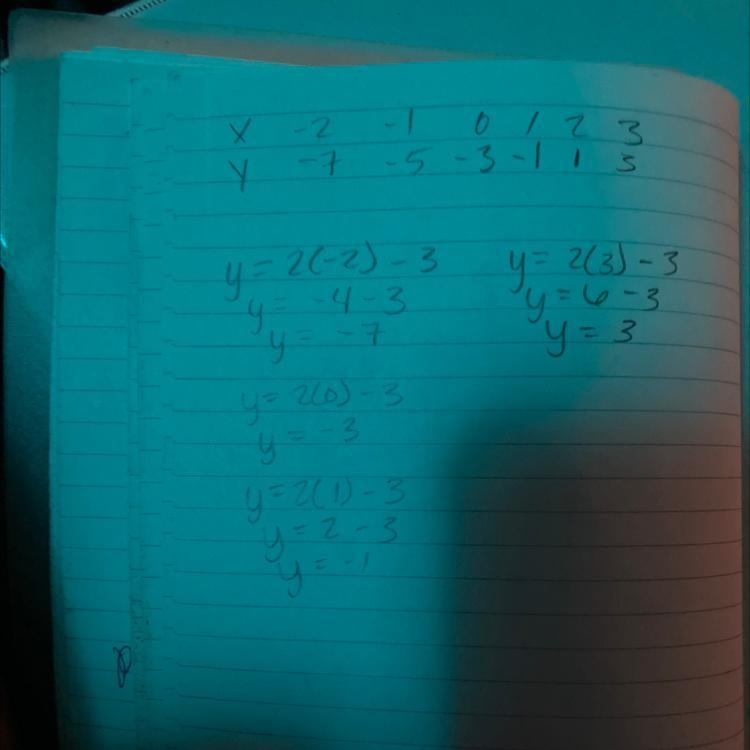 x -2 -1 0 1 2 3
y -7 -5 -3 -1 1 3
y = 2(-2) - 3
y = -4 - 3
y = -7
y = 2(3) - 3
y = 6 - 3
y = 3
y = 2(0) - 3
y = -3
y = 2(1) - 3
y = 2 - 3
y = -1